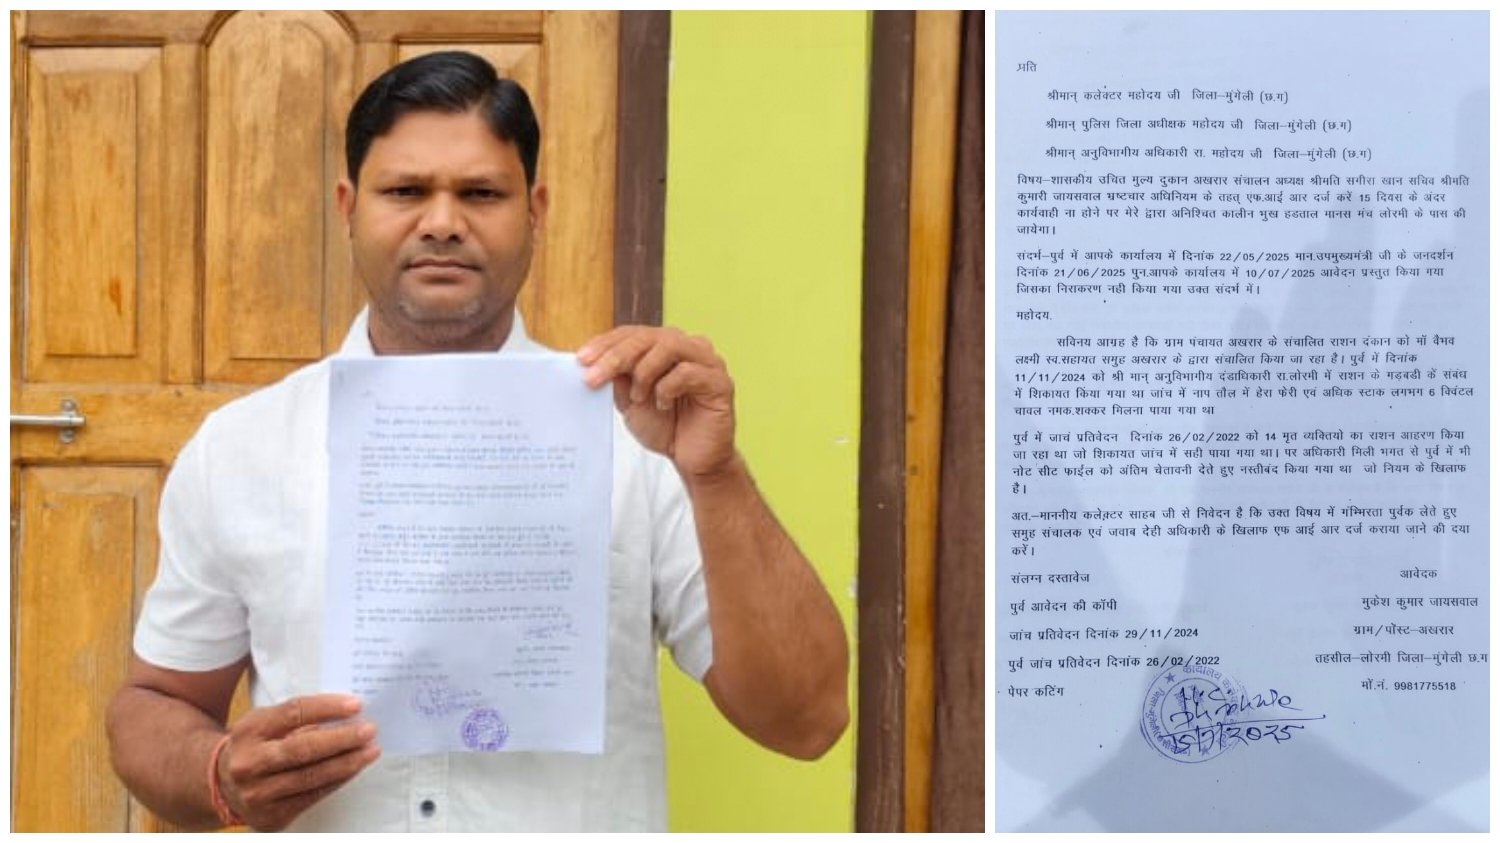 प्रति
श्रीमान् कलेक्टर महोदय जी जिला–मुंगेली (छ.ग)
श्रीमान् पुलिस जिला अधीक्षक महोदय जी जिला–मुंगेली (छ.ग)
श्रीमान् अनुविभागीय अधिकारी रा. महोदय जी जिला–मुंगेली (छ.ग)
विषय–शासकीय उचित मुल्य दुकान अखरार संचालन अध्यक्ष श्रीमति सगीरा खान सचिव श्रीमति
कुमारी जायसवाल भ्रष्टचार अधिनियम के तहत् एफ.आई आर दर्ज करें 15 दिवस के अंदर
कार्यवाही ना होने पर मेरे द्वारा अनिश्चित कालीन भुख हडताल मानस मंच लोरमी के पास की
जायेगा।
संदर्भ–पुर्व में आपके कार्यालय में दिनांक 22/05/2025 मान.उपमुख्यमंत्री जी के जनदर्शन
दिनांक 21/06/2025 पुन.आपके कार्यालय में 10/07/2025 आवेदन प्रस्तुत किया गया
जिसका निराकरण नही किया गया उक्त संदर्भ में।
महोदय.
सविनय आग्रह है कि ग्राम पंचायत अखरार के संचालित राशन दंकान को माँ वैभव
लक्ष्मी स्व.सहायत समुह अखरार के द्वारा संचालित किया जा रहा है। पुर्व में दिनांक
11/11/2024 को श्री मान् अनुविभागीय दंडाधिकारी रा.लोरमी में राशन के गड़बडी के संबंध
में शिकायत किया गया था जांच में नाप तौल में हेरा फेरी एवं अधिक स्टाक लगभग 6 क्विंटल
चावल नमक.शक्कर मिलना पाया गया था
पुर्व में जाचं प्रतिवेदन दिनांक 26/02/2022 को 14 मृत व्यक्तियो का राशन आहरण किया
जा रहा था जो शिकायत जांच में सही पाया गया था। पर अधिकारी मिली भगत से पुर्व में भी
नोट सीट फाईल को अंतिम चेतावनी देते हुए नस्तीबंद किया गया था जो नियम के खिलाफ
है।
अत.–माननीय कलेक्टर साहब जी से निवेदन है कि उक्त विषय में गंम्भिरता पुर्वक लेते हुए
समुह संचालक एवं जवाब देही अधिकारी के खिलाफ एफ आई आर दर्ज कराया जाने की दया
करें।
संलग्न दस्तावेज
आवेदक
पुर्व आवेदन की कॉपी
मुकेश कुमार जायसवाल
जांच प्रतिवेदन दिनांक 29/11/2024
ग्राम/पोंस्ट–अखरार
पुर्व जांच प्रतिवेदन दिनांक 26/02/2022
तहसील–लोरमी जिला–मुंगेली छ.ग
पेपर कटिंग
मों.नं. 9981775518
15/7/2025